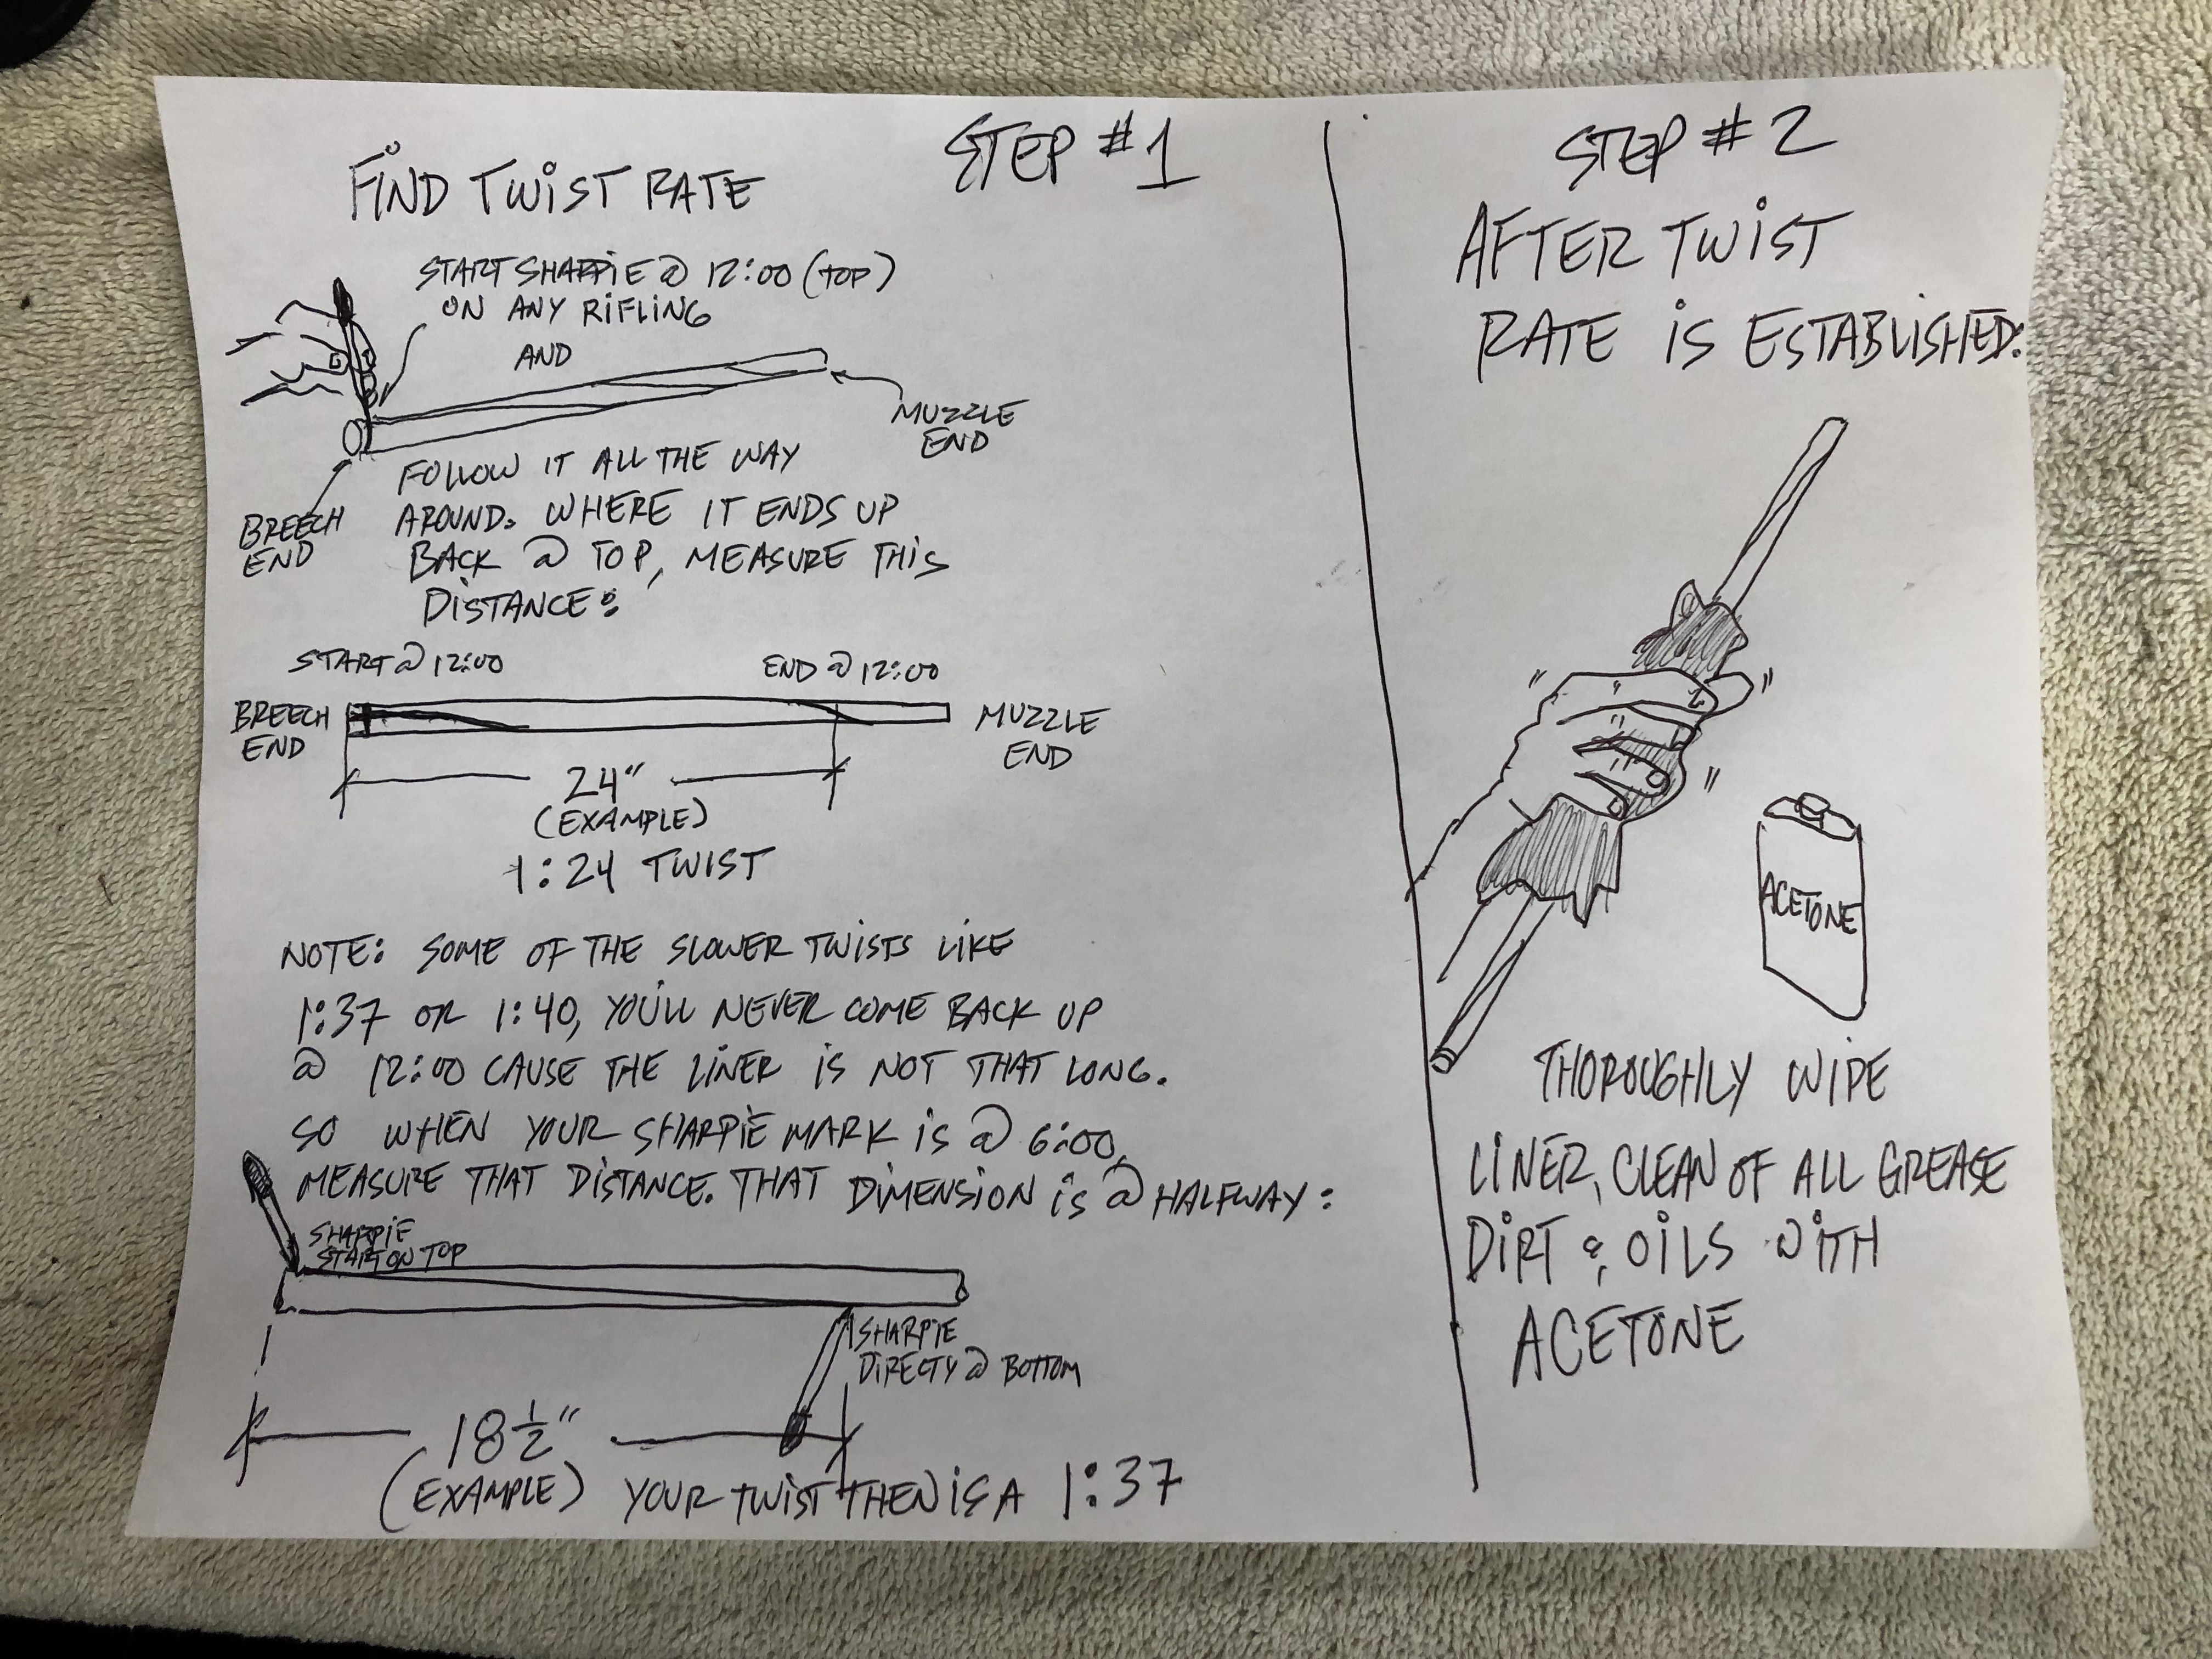 STEP #1
FIND TWIST RATE
START SHARPIE @ 12:00 (TOP)
ON ANY RIFLING
AND
MUZZLE
END
FOLLOW IT ALL THE WAY
AROUND. WHERE IT ENDS UP
BACK @ TOP, MEASURE THIS
DISTANCE:
BREECH
END
START @ 12:00
END @ 12:00
BREECH
END
MUZZLE
END
24"
(EXAMPLE)
1:24 TWIST
NOTE: SOME OF THE SLOWER TWISTS LIKE
1:37 OR 1:40, YOU'LL NEVER COME BACK UP
@ 12:00 CAUSE THE LINER IS NOT THAT LONG.
SO WHEN YOUR SHARPIE MARK IS @ 6:00,
MEASURE THAT DISTANCE. THAT DIMENSION IS @ HALFWAY:
SHARPIE
START ON TOP
SHARPIE
DIRECTY @ BOTTOM
18 1/2"
(EXAMPLE) YOUR TWIST THEN IS A 1:37
STEP #2
AFTER TWIST
RATE IS ESTABLISHED:
ACETONE
THOROUGHLY WIPE
LINER, CLEAN OF ALL GREASE
DIRT & OILS WITH
ACETONE